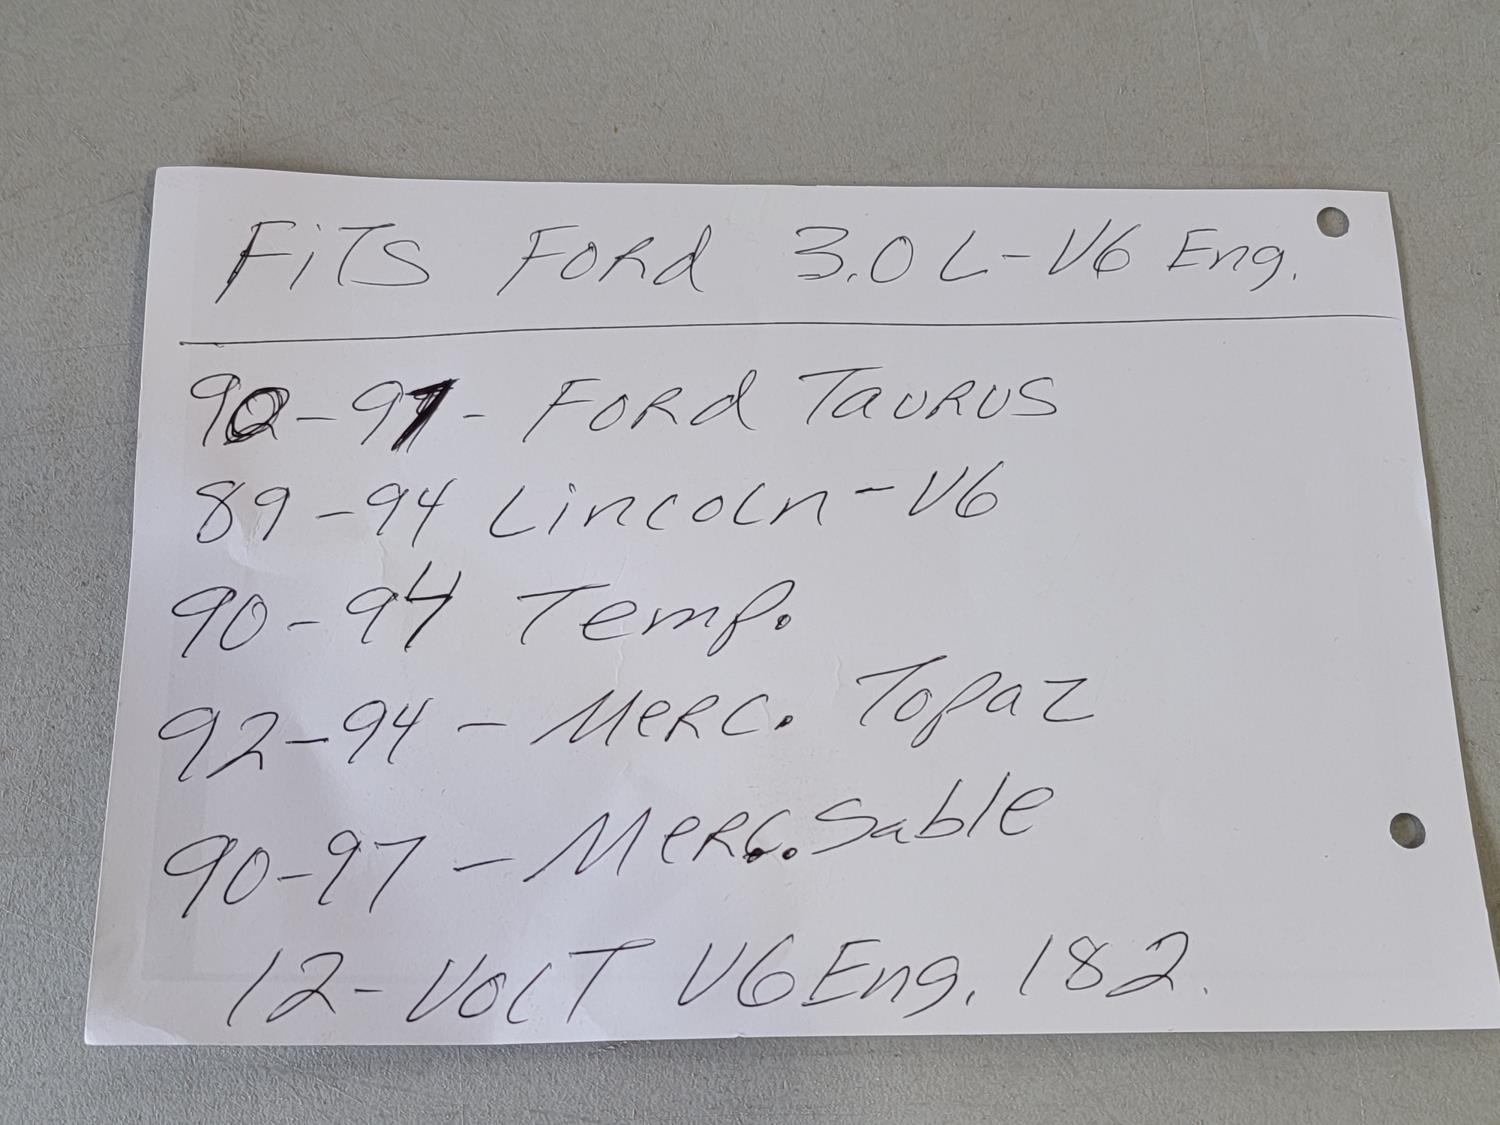 Fits Ford 3.0 L-V6 Eng.
90-97- Ford Taurus
89-94 Lincoln-V6
90-94 Temp.
92-94 - Merc. Topaz
90-97 - Merc. Sable
12-Volt V6 Eng. 182.